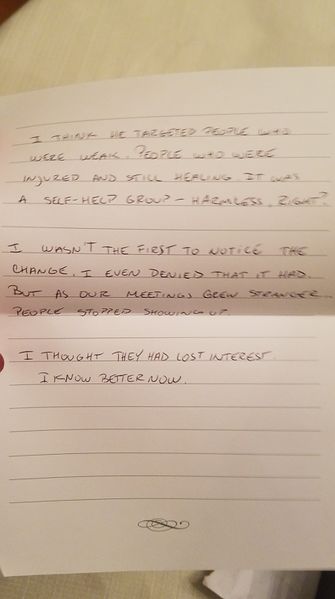 I THINK HE TARGETED PEOPLE WHO
WERE WEAK. PEOPLE WHO WERE
INJURED AND STILL HEALING. IT WAS
A SELF-HELP GROUP – HARMLESS, RIGHT?
I WASN'T THE FIRST TO NOTICE THE
CHANGE. I EVEN DENIED THAT IT HAD.
BUT AS OUR MEETINGS GREW STRANGER
PEOPLE STOPPED SHOWING UP.
I THOUGHT THEY HAD LOST INTEREST.
I KNOW BETTER NOW.